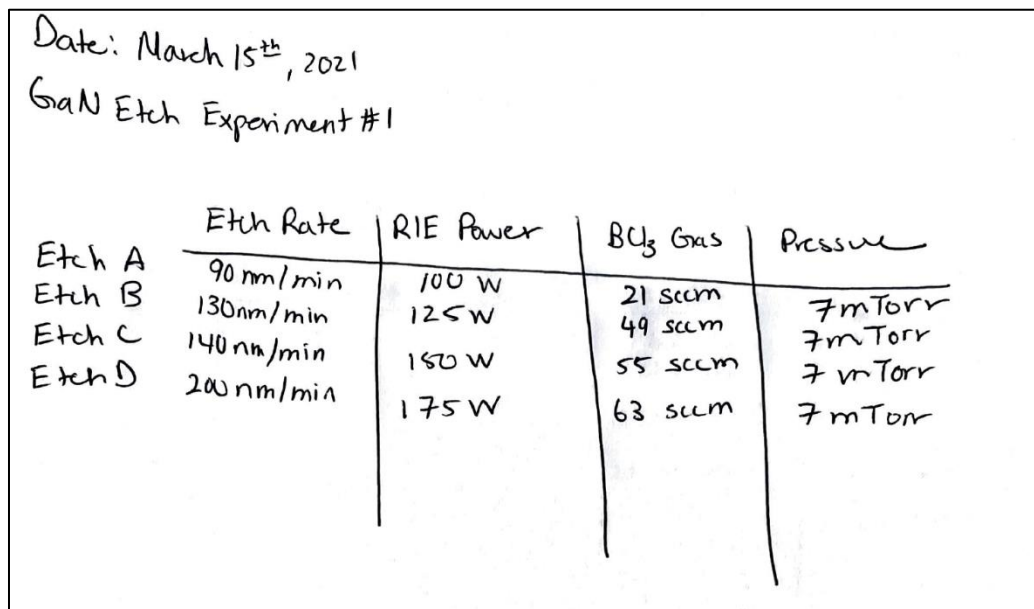 Date: March 15th, 2021
GaN Etch Experiment #1
Etch Rate RIE Power BCl3 Gas Pressure
Etch A 90 nm/min 100 W 21 sccm 7 mTorr
Etch B 130 nm/min 125 W 49 sccm 7 mTorr
Etch C 140 nm/min 150 W 55 sccm 7 mTorr
Etch D 200 nm/min 175 W 63 sccm 7 mTorr